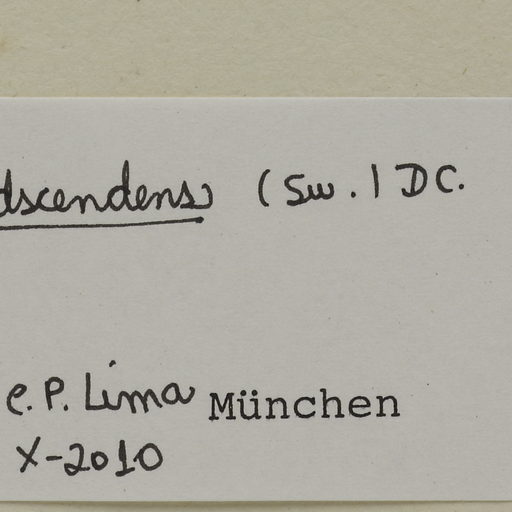 adscendens (Sw.) DC.
L. P. Lima München
X-2010